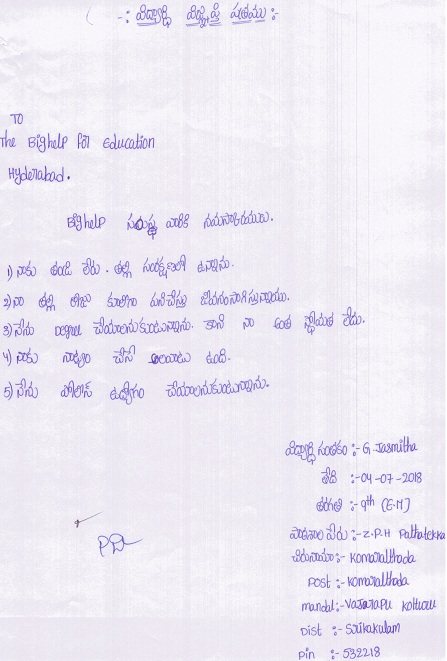 -: విద్యార్థి విజ్ఞప్తి పత్రము :-
TO
The Bighelp for Education
Hyderabad.
Bighelp సంస్థ వారికి నమస్కారములు.
1) నాకు తండ్రి లేరు. తల్లి సంరక్షణలో ఉన్నాను.
2) నా తల్లి రోజు కూలిగా పనిచేస్తు జీవనంసాగిస్తున్నాము.
3) నేను Degree చేయాలనుకుంటున్నాను. కాని నా అంత స్థోమత లేదు.
4) నాకు నాట్యం చేసే అలవాటు ఉంది.
5) నేను పోలీస్ ఉద్యోగం చేయాలనుకుంటున్నాను.
విద్యార్థి సంతకం :- G. Jasmitha
తేది :- 04-07-2018
తరగతి :- 9th (E.M)
పాఠశాల పేరు :- Z.P.H Pathatekka
చిరునామా :- Komaralthada
Post :- Komaralthada
mandal :- Vajrapu Kotturu
Dist :- Srikakulam
Pin :- 532218